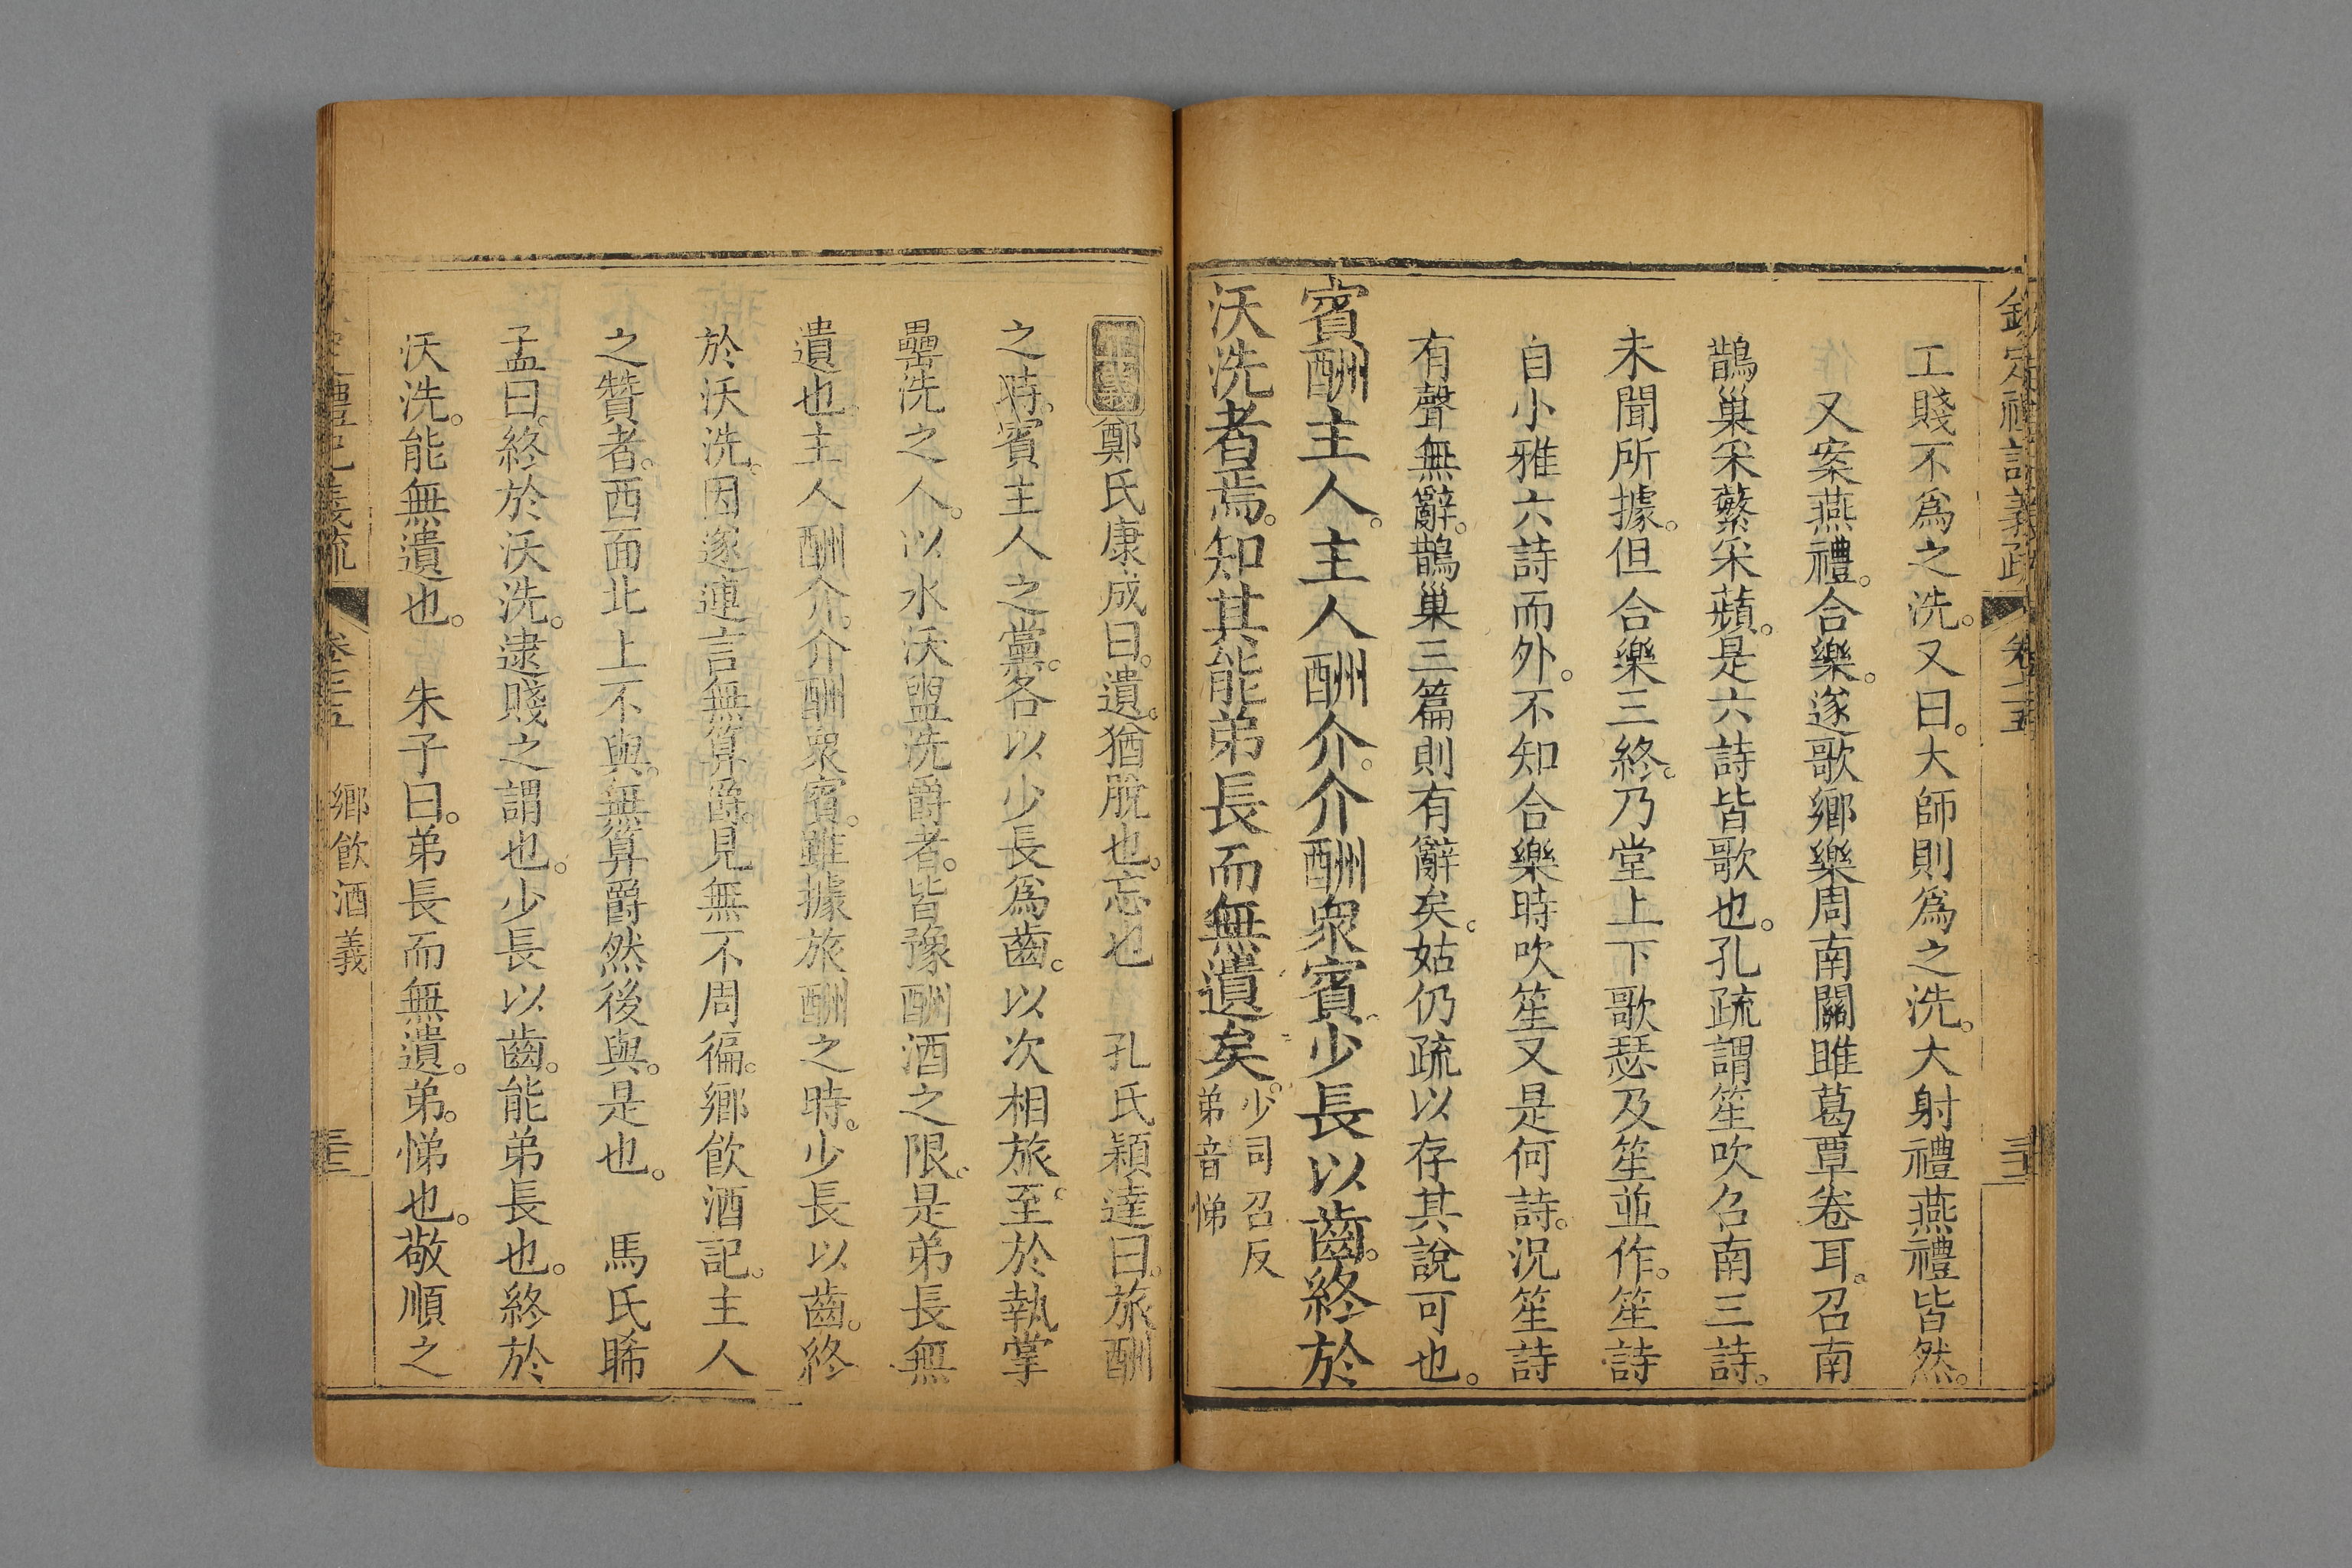 欽定禮記義疏 卷七十五 三十二
工賤不爲之洗。又曰。大師則爲之洗。大射禮燕禮皆然。
又案燕禮。合樂。遂歌鄉樂周南關雎葛覃卷耳。召南
鵲巢采蘩采蘋。是六詩皆歌也。孔疏謂笙吹召南三詩。
未聞所據。但合樂三終。乃堂上下歌瑟及笙並作。笙詩
自小雅六詩而外。不知合樂時吹笙又是何詩。況笙詩
有聲無辭。鵲巢三篇則有辭矣。姑仍疏以存其說可也。
賓酬主人。主人酬介。介酬衆賓。少長以齒。終於
沃洗者焉。知其能弟長而無遺矣。
少司召反
弟音悌
正義鄭氏康成曰。遺。猶脫也。忘也 孔氏穎達曰。旅酬
之時。賓主人之黨。各以少長爲齒。以次相旅。至於執掌
罍洗之人。以水沃盥洗爵者。皆豫酬酒之限。是弟長無
遺也。主人酬介。介酬衆賓。雖據旅酬之時。少長以齒。終
於沃洗。因遂連言無算爵。見無不周徧。鄉飲酒記。主人
之贊者。西面北上不與。無算爵然後與。是也。 馬氏睎
孟曰。終於沃洗。逮賤之謂也。少長以齒。能弟長也。終於
沃洗。能無遺也。 朱子曰。弟長而無遺。弟。悌也。敬順之
禮記義疏 鄉飲酒義 三十二